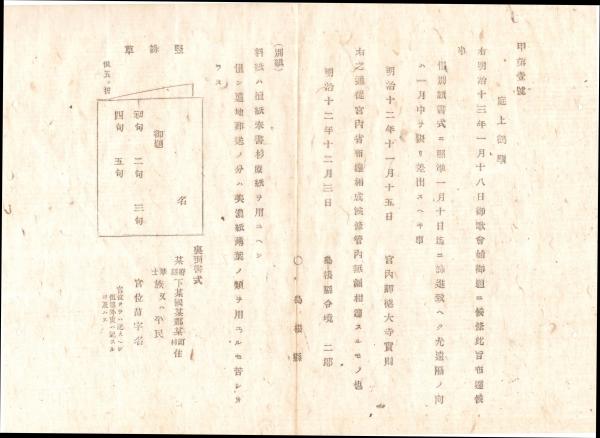 甲第壹號
庭上鶴馴
右明治十三年一月十八日御歌會始御題ニ候條此旨布達候
事
但別紙書式ニ照準一月十日迄ニ詠進致ヘク尤遠隔ノ向
ハ一月中ヲ限リ差出スヘキ事
明治十二年十一月十五日 宮內卿德大寺實則
右之通從宮內省布達相成候條管內無漏相達スルモノ也
明治十二年十二月三日 島根縣令境 二郎
〇島根縣
(別紙)
料紙ハ檀紙奉書杉原紙ヲ用ユヘシ
但シ遠地郵送ノ分ハ美濃紙薄葉ノ類ヲ用ウルモ苦シカ
ラス
竪詠草
但五ッ折
御題 名
初句 二句 三句
四句 五句
裏面書式
某府縣下某國某郡某町村住
華士族又ハ平民
官位苗字名